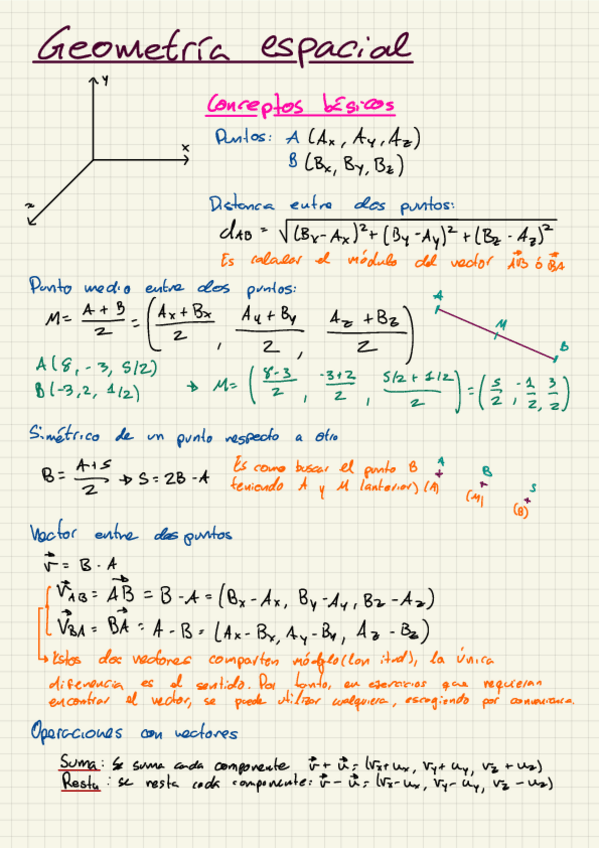 Geometría espacial
Y
X
z
Conceptos básicos
Puntos: A (Ax, Ay, Az)
B (Bx, By, Bz)
Distanca entre dos puntos:
dAB = √((Bx-Ax)²+(By-Ay)²+(Bz-Az)²)
Es calcular el módulo del vector AB ó BA
Punto medio entre dos puntos:
M = (A+B)/2 = ((Ax+Bx)/2, (Ay+By)/2, (Az+Bz)/2)
A
M
B
A(8, -3, 5/2)
B(-3, 2, 1/2)
→ M = ((8-3)/2, (-3+2)/2, (5/2+1/2)/2) = (5/2, -1/2, 3/2)
Simétrico de un punto respecto a otro
B = (A+S)/2 → S = 2B - A
Es como buscar el punto B
teniendo A y M (anterior)
A
(A)
B
(M)
S
(B)
Vector entre dos puntos
v = B - A
VAB = AB = B - A = (Bx-Ax, By-Ay, Bz-Az)
VBA = BA = A - B = (Ax-Bx, Ay-By, Az-Bz)
Estos dos vectores comparten módulo (longitud), la única
diferencia es el sentido. Por tanto, en ejercicios que requieran
encontrar el vector, se puede utilizar cualquiera, escogiendo por conveniencia.
Operaciones con vectores
Suma: se suma cada componente v + u = (vx+ux, vy+uy, vz+uz)
Resta: se resta cada componente: v - u = (vx-ux, vy-uy, vz-uz)